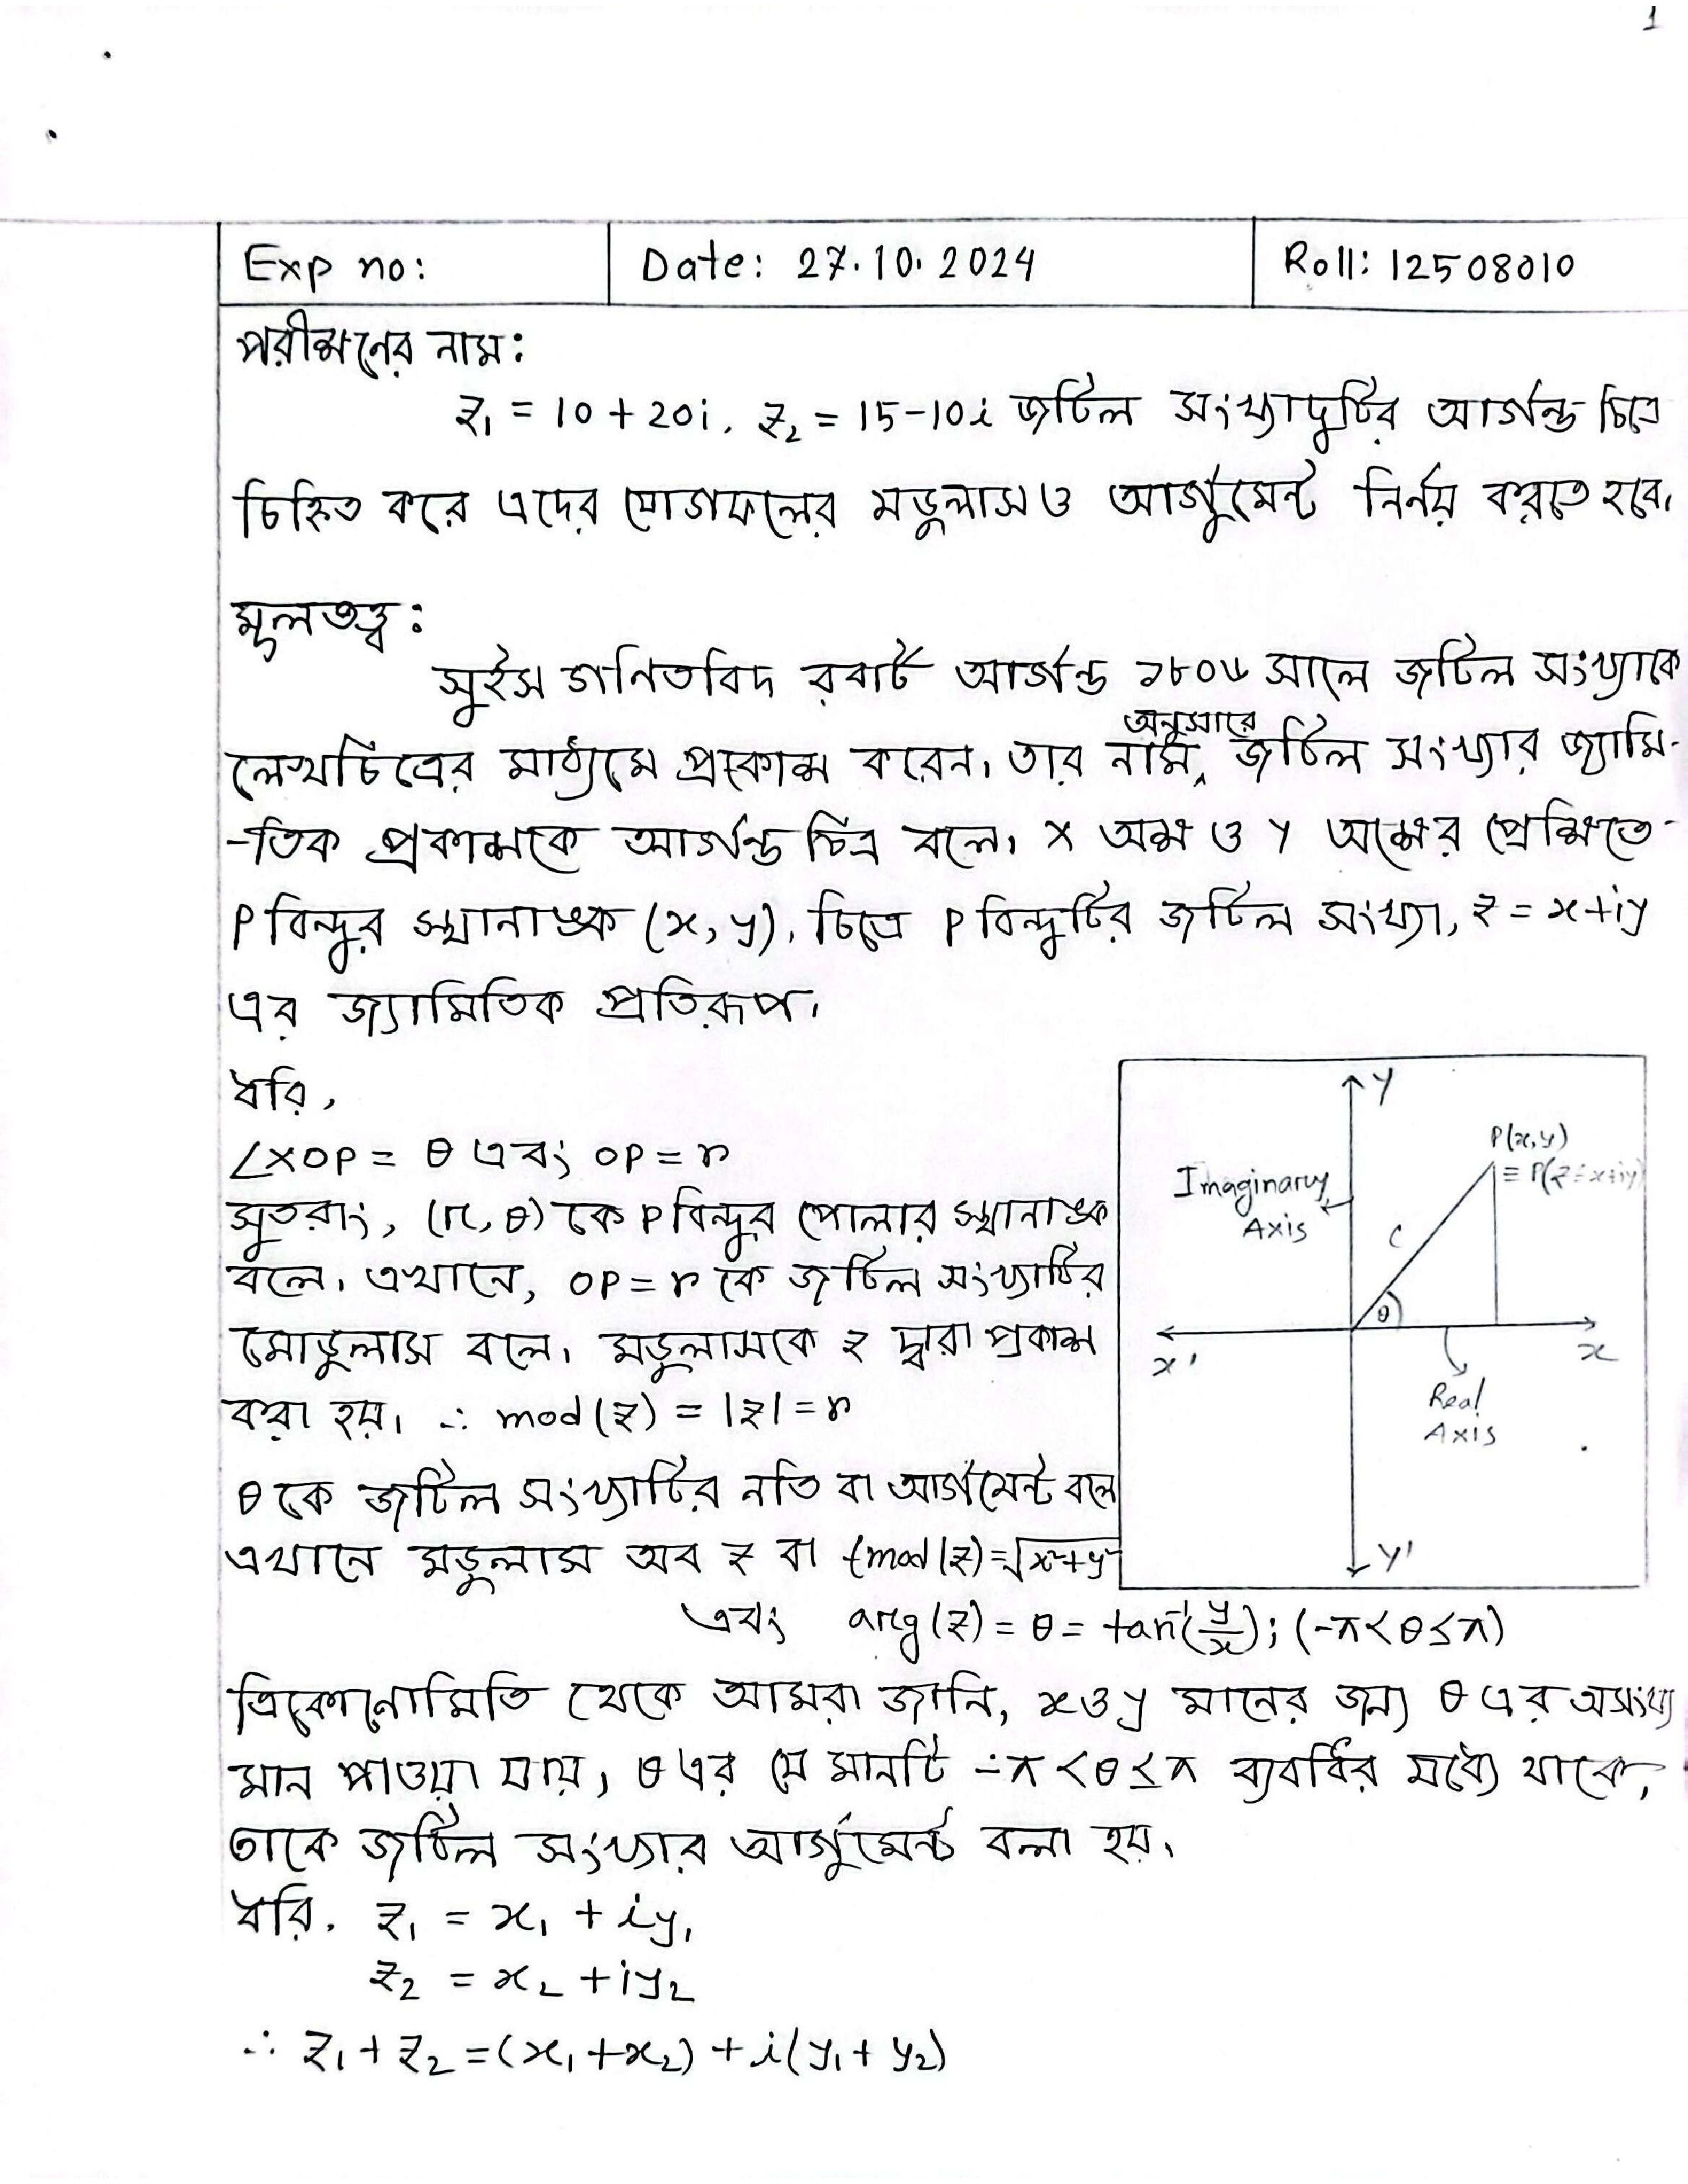 1
Exp no: Date: 27.10.2024 Roll: 12508010
পরীক্ষনের নাম:
z₁ = 10 + 20i, z₂ = 15-10i জটিল সংখ্যাদুটির আর্গন্ড চিত্রে
চিহ্নিত করে এদের যোগফলের মডুলাস ও আর্গুমেন্ট নির্নয় করতে হবে।
মূলতত্ত্ব:
সুইস গনিতবিদ রবার্ট আর্গন্ড ১৮০৬ সালে জটিল সংখ্যাকে
লেখচিত্রের মাধ্যমে প্রকোাশ করেন। তার নাম অনুসারে জটিল সংখ্যার জ্যামি-
-তিক প্রকাশকে আর্গন্ড চিত্র বলে। X অক্ষ ও Y অক্ষের প্রেক্ষিতে
P বিন্দুর স্থানাঙ্ক (x, y), চিত্রে P বিন্দুটির জটিল সংখ্যা, z = x+iy
এর জ্যামিতিক প্রতিরূপ।
ধরি,
∠XOP = θ এবং OP = r
সুতরাং, (r, θ) কে P বিন্দুর পোলার স্থানাঙ্ক
বলে। এখানে, OP = r কে জটিল সংখ্যাটির
মোডুলাস বলে। মডুলাসকে z দ্বারা প্রকাশ
করা হয়। ∴ mod(z) = |z| = r
θ কে জটিল সংখ্যাটির নতি বা আর্গমেন্ট বলে
এখানে মডুলাস অব z বা (mod(z) = √x²+y²
এবং arg(z) = θ = tan⁻¹(y/x); (-π < θ ≤ π)
Y
P(x,y)
≡ P(z = x+iy)
Imaginary
Axis
r
θ
x'
x
Real
Axis
Y'
ত্রিকোনোমিতি থেকে আমরা জানি, x ও y মানের জন্য θ এর অসংখ্য
মান পাওয়া যায়, θ এর যে মানটি -π < θ ≤ π ব্যবধির মধ্যে থাকে,
তাকে জটিল সংখ্যার আর্গুমেন্ট বলা হয়।
ধরি, z₁ = x₁ + iy₁
z₂ = x₂ + iy₂
∴ z₁ + z₂ = (x₁ + x₂) + i(y₁ + y₂)